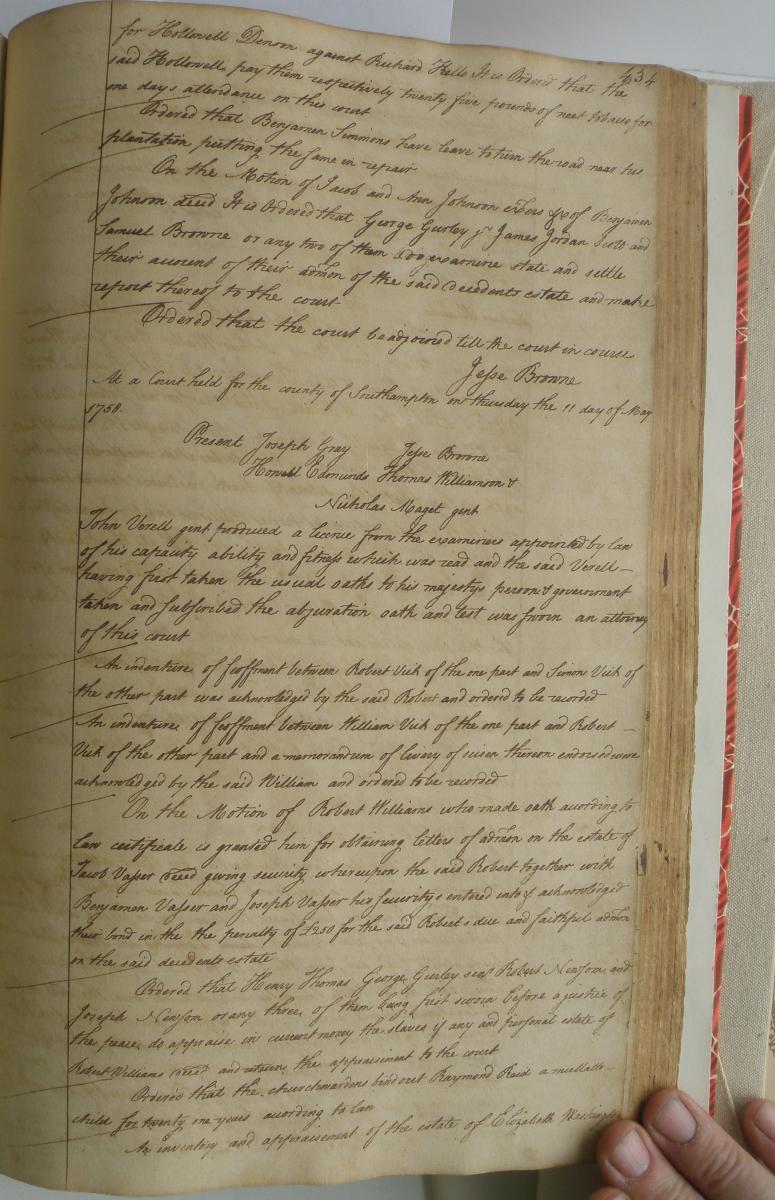 434
for Hollowell Denson against Richard Kello It is Ordered that the
said Hollowell pay them respectively twenty five pounds of neet tobacco for
one days attendance on this court
Ordered that Benjamen Simmons have leave to turn the road near his
plantation putting the same in repair
On the Motion of Jacob and Ann Johnson exĕrs &c of Benjamen
Johnson decd It is Ordered that George Gurley jr James Jordan Scott and
Samuel Browne or any two of them do examine state and settle
their account of their admon of the said decedents estate and make
report thereof to the court
Ordered that the court be adjoined till the court in course
Jesse Browne
At a Court held for the county of Southampton on thursday the 11 day of May
1758.
Present Joseph Gray Jesse Browne
Howell Edmunds Thomas Williamson &
Nicholas Maget gent
John Verell gent produced a licence from the examiners appointed by law
of his capacity ability and fitness which was read and the said Verell
having first taken the usual oaths to his majestys person & government
taken and subscribed the abjuration oath and test was sworn an attorney
of this court
An indenture of feoffment between Robert Vick of the one part and Simon Vick of
the other part was acknowledged by the said Robert and ordered to be recorded
An indenture of feoffment between William Vick of the one part and Robert
Vick of the other part and a memorandum of livery of seisen thereon endorsed were
acknowledged by the said William and ordered to be recorded
On the Motion of Robert Williams who made oath according to
law certificate is granted him for obtaining letters of admon on the estate of
Jacob Vasser decd giving security whereupon the said Robert together with
Benjamen Vasser and Joseph Vasser his securitys entered into & acknowledged
their bond in the the penalty of £250 for the said Roberts due and faithful admon
on the said decedents estate
Ordered that Henry Thomas George Gurley senr Robert Newsom and
Joseph Newsom or any three of them being first sworn before a justice of
the peace do appraise in current money the slaves if any and personal estate of
Robert Williams decd and return the appraisment to the court
Ordered that the churchwardens bind out Raymond Reid a mullatto
child for twenty one years according to law
An inventory and appraisement of the estate of Elizabeth